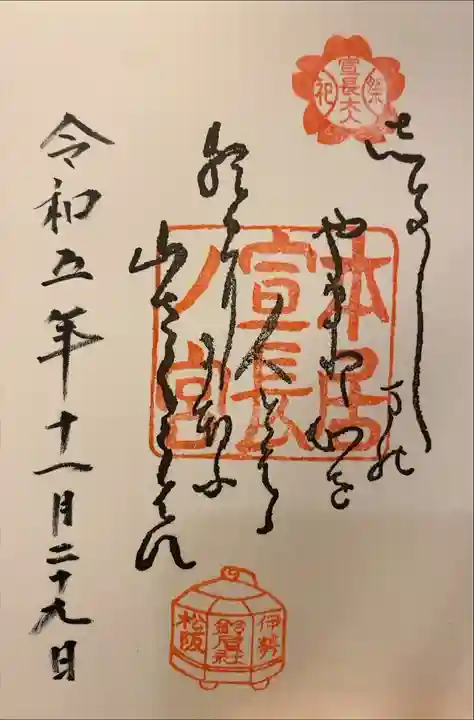 祭
宣長大人
祀
本居
宣長
ノ宮
しき嶋の
やまとこゝろを
人とはゝ
朝日ににほふ
山さくらはな
令和五年十一月二十九日
伊勢
鈴屋社
松阪